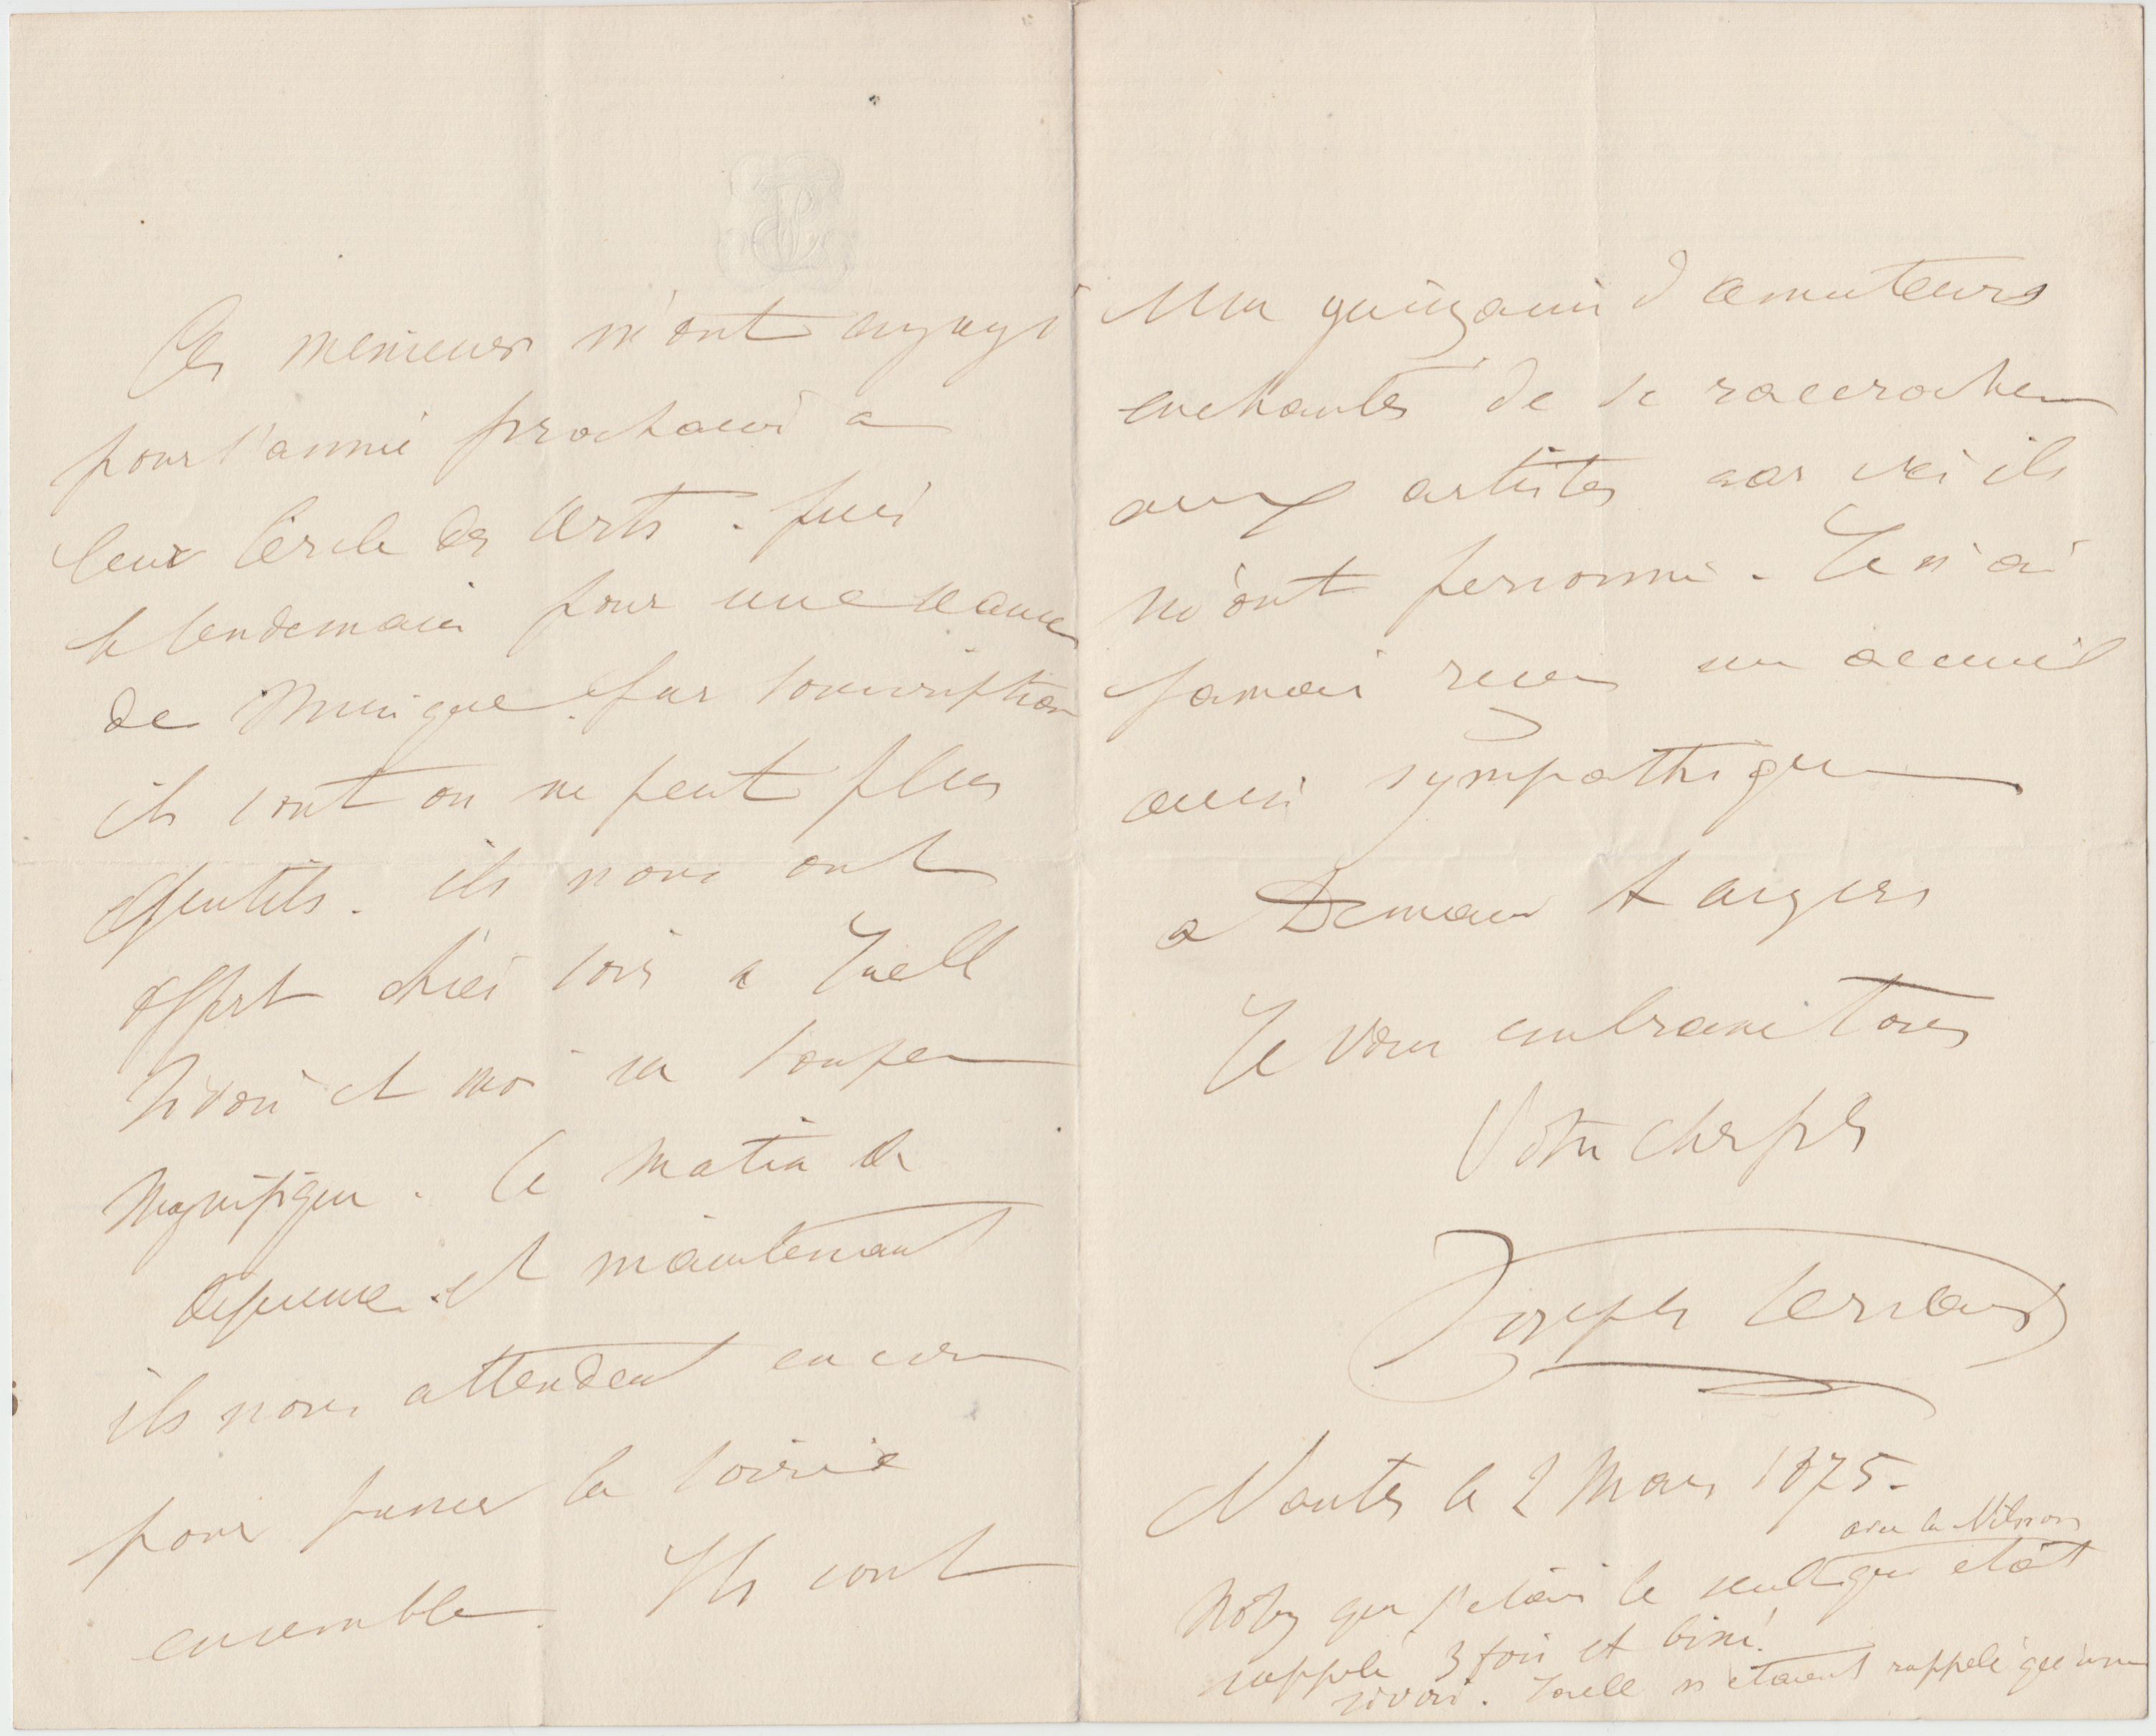 Ces messieurs m'ont engagé
pour l'année prochaine a
leur Cercle des Arts. puis
le lendemain pour une seance
de Musique par souscription
ils sont on ne peut plus
gentils. ils nous ont
offert hier soir a Jaell
Sivori et moi un souper
Magnifique. Ce matin de
dejeuner. et maintenant
ils nous attendent encore
pour passer la soirée
ensemble. Ils sont
une quinzaine d'amateurs
enchantés de se raccrocher
aux artistes car ici ils
n'ont personne. Je n'ai
jamais reçu un accueil
aussi sympathique
a Demain Angers
Je vous embrasse tous
Votre cher fils
Joseph Servais
Nantes le 2 Mars 1875.
avec la Nilsson
Notez que j'etais le seul qui etait
rappelé 3 fois et bissé.
Sivori. Jaell n'etaient rappelé qu'une